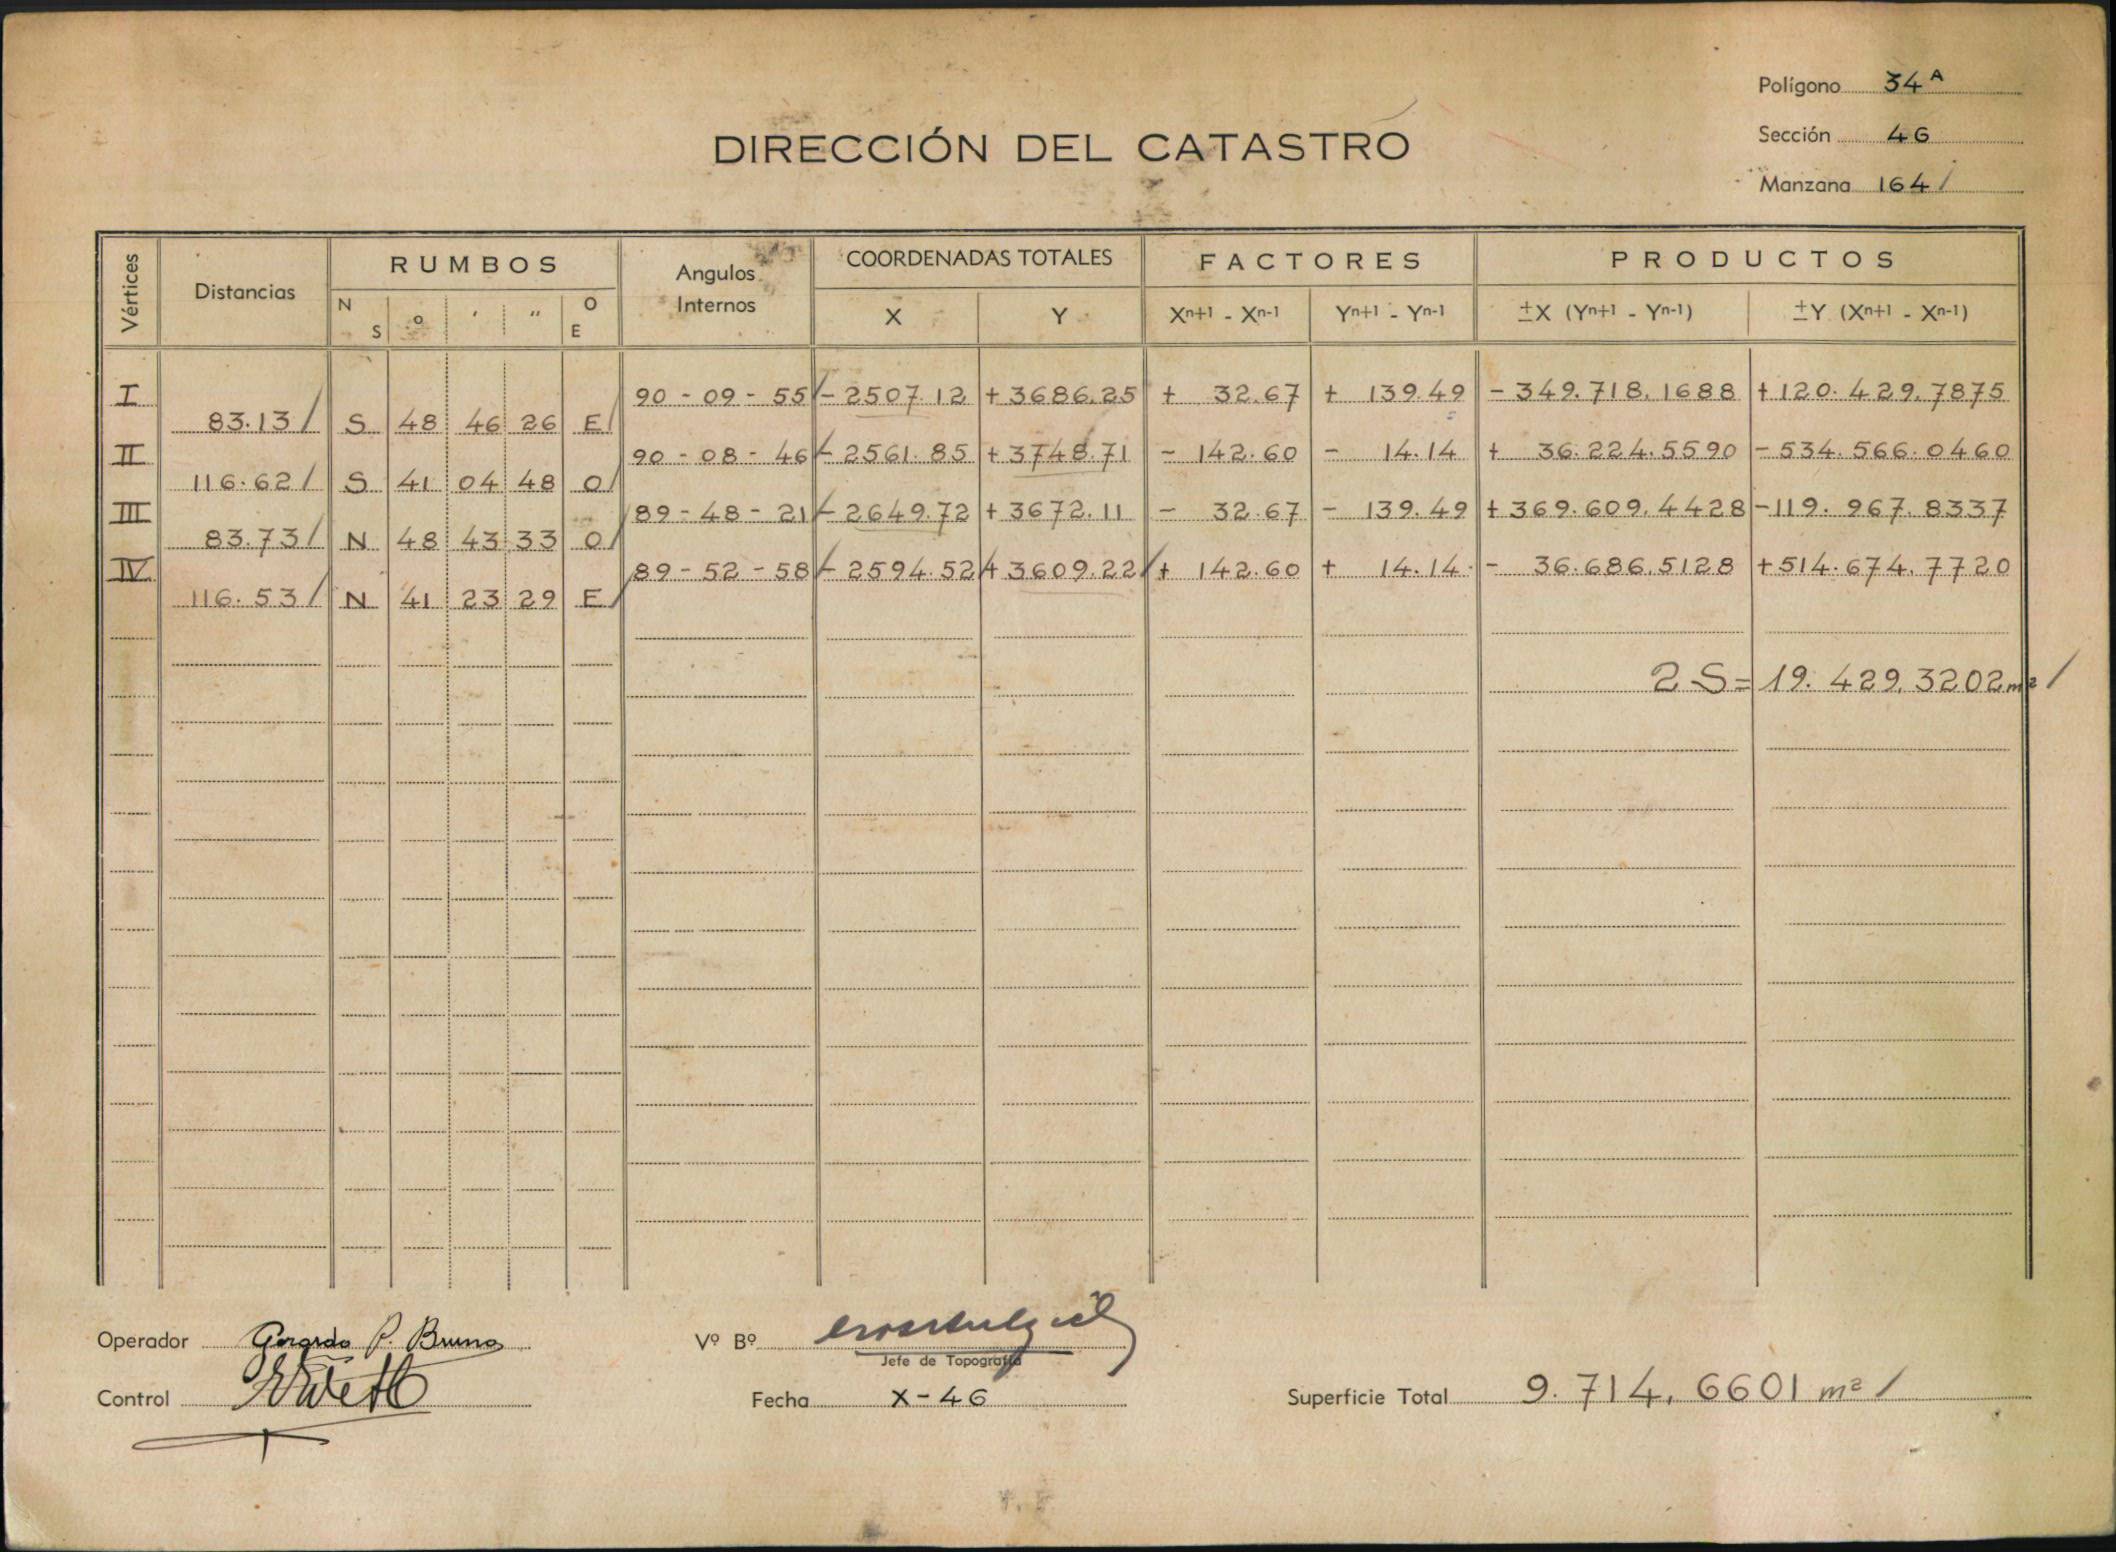 Polígono 34 A
DIRECCIÓN DEL CATASTRO
Sección 46
Manzana 164 /
Vértices Distancias RUMBOS Angulos Internos COORDENADAS TOTALES FACTORES PRODUCTOS
N S º ' '' O E X Y Xn+1 - Xn-1 Yn+1 - Yn-1 ±X (Yn+1 - Yn-1) ±Y (Xn+1 - Xn-1)
I 90 - 09 - 55 / - 2507.12 + 3686.25 + 32.67 + 139.49 - 349.718.1688 + 120.429.7875
83.13 / S 48 46 26 E /
II 90 - 08 - 46 / - 2561.85 + 3748.71 - 142.60 - 14.14 + 36.224.5590 - 534.566.0460
116.62 / S 41 04 48 O /
III 89 - 48 - 21 / - 2649.72 + 3672.11 - 32.67 - 139.49 + 369.609.4428 - 119.967.8337
83.73 / N 48 43 33 O /
IV 89 - 52 - 58 / - 2594.52 / + 3609.22 / + 142.60 + 14.14 - 36.686.5128 + 514.674.7720
116.53 / N 41 23 29 E /
2 S = 19.429.3202 m² /
Operador Gerardo P. Bruno
Vº Bº
Jefe de Topografía
Control
Fecha X - 46
Superficie Total 9.714,6601 m² /